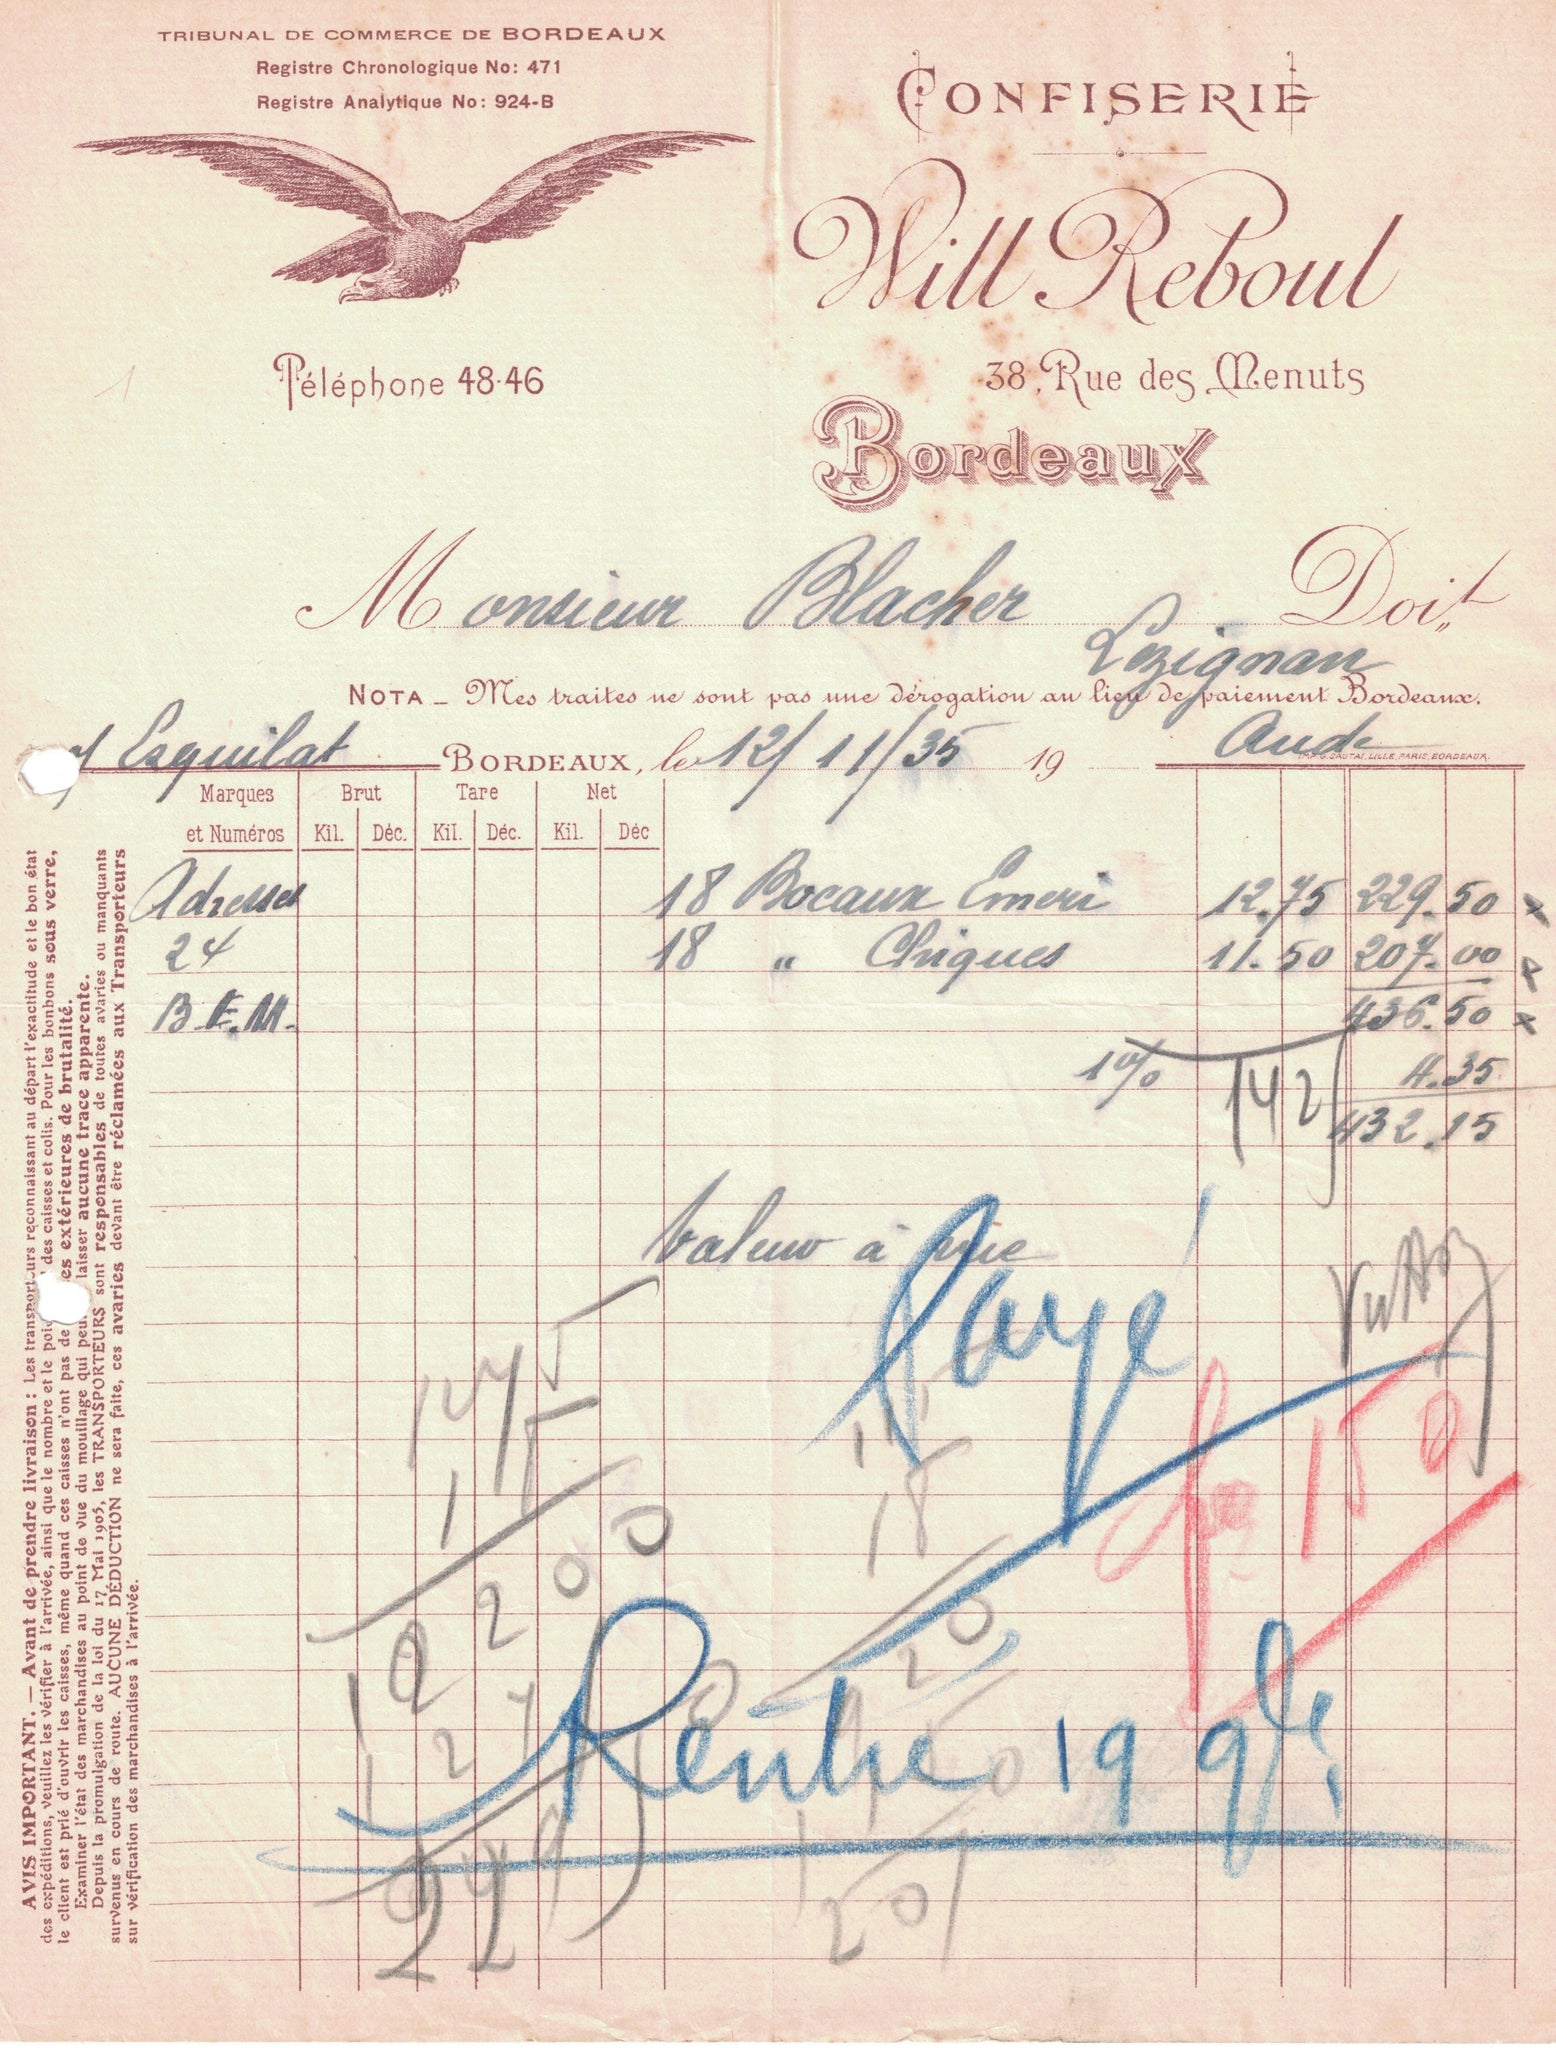 TRIBUNAL DE COMMERCE DE BORDEAUX
Registre Chronologique No: 471
Registre Analytique No: 924-B
Téléphone 48-46
CONFISERIE
Will Reboul
38, Rue des Menuts
Bordeaux
Monsieur Blacher Doit
Lezignan
NOTA - Mes traites ne sont pas une dérogation au lieu de paiement Bordeaux.
Aude
Esquilat BORDEAUX, le 12/11/35 19
Marques et Numéros Brut Tare Net
Kil. Déc. Kil. Déc. Kil. Déc
Adresses 18 Bocaux Emeri 12.75 229.50
24 18 " Chiques 11.50 207.00
B.E.M. 436.50
1% 4.35
142
432.15
Valeur à vue
Payé
150
Rentré 19 9bre
1275
18
10200
1275
115
18
920
115
AVIS IMPORTANT. — Avant de prendre livraison : Les transporteurs reconnaissant au départ l'exactitude et le bon état
des expéditions, veuillez les vérifier à l'arrivée, ainsi que le nombre et le poids des caisses et colis. Pour les bonbons sous verre,
le client est prié d'ouvrir les caisses, même quand ces caisses n'ont pas de extérieures de brutalité.
Examiner l'état des marchandises au point de vue du mouillage qui peut laisser aucune trace apparente.
Depuis la promulgation de la loi du 17 Mai 1905, les TRANSPORTEURS sont responsables de toutes avaries ou manquants
survenus en cours de route. AUCUNE DÉDUCTION ne sera faite, ces avaries devant être réclamées aux Transporteurs
sur vérification des marchandises à l'arrivée.